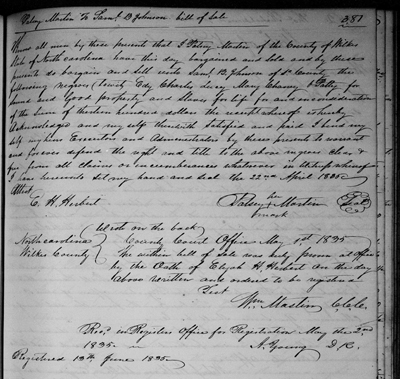 Patsey Martin To Saml. B Johnson bill of Sale 381
Know all men by these presents that I Patsey Martin of the County of Wilkes
State of North carolina have this day bargained and Sold and by these
presents do bargain and Sell unto Saml. B. Johnson of Sd County the
following Negroes Edy Charles Lucy Mary Chaney & Patty, for
Sound and Good property and Slaves for life for and in consideration
of the Sum of thirteen hundred dollars the receipt whereof I hereby
Acknowledged and my self therewith Satisfied and paid I bind my
Self my heirs Executors and Administrators by these presents to warrant
and forever defend the right and title to the above negroes clear &
free from all claims or incumberances whatsoever in Witness whereof
I have hereunto Set my hand and Seal the 22nd April 1835
Attest
E. H. Herbert Patsey her Martin Seal
mark
Wrote on the back
North carolina County Court Office May 1st 1835
Wilkes County The within bill of Sale was duly proven at Office
by the Oath of Elijah H. Herbert on the day
above written and ordered to be registered
Test
Wm Mastin C.C.C.
Recd. in Registers Office for Registration May the 2nd
1835 A. Young D R.
Registered 13th June 1835